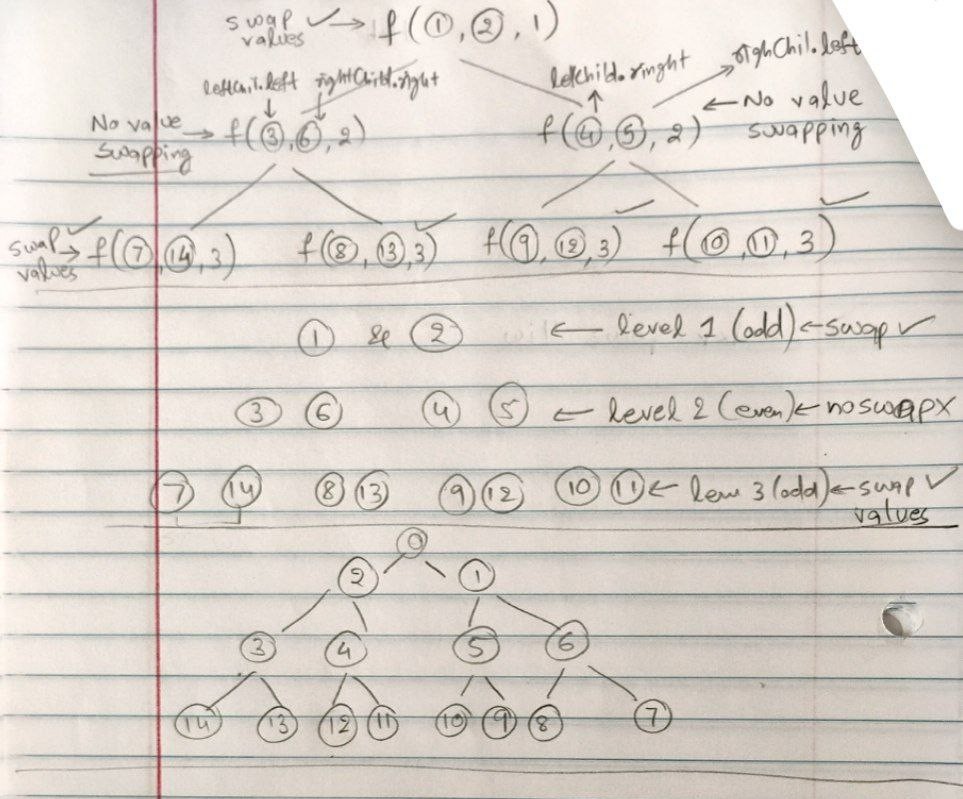 swap ✓ → f(①, ②, 1)
values
leftChil.left rightChild.right
leftChild.ringht
righChil.left
No value → f(③, ⑥, 2)
swapping
f(④, ⑤, 2) ← No value
swapping
swap ✓ → f(⑦, ⑭, 3) f(⑧, ⑬, 3) ✓ f(⑨, ⑫, 3) ✓ f(⑩, ⑪, 3) ✓
values
① & ② ← level 1 (odd) ← swap ✓
③ ⑥ ④ ⑤ ← level 2 (even) ← no swap X
⑦ ⑭ ⑧ ⑬ ⑨ ⑫ ⑩ ⑪ ← 3 (odd) ← swap ✓
values
⓪
② ①
③ ④ ⑤ ⑥
⑭ ⑬ ⑫ ⑪ ⑩ ⑨ ⑧ ⑦